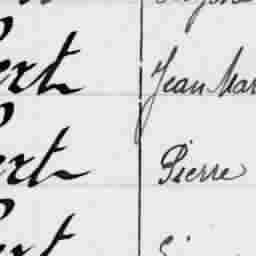 ert Jean Mar
ert Pierre
ert